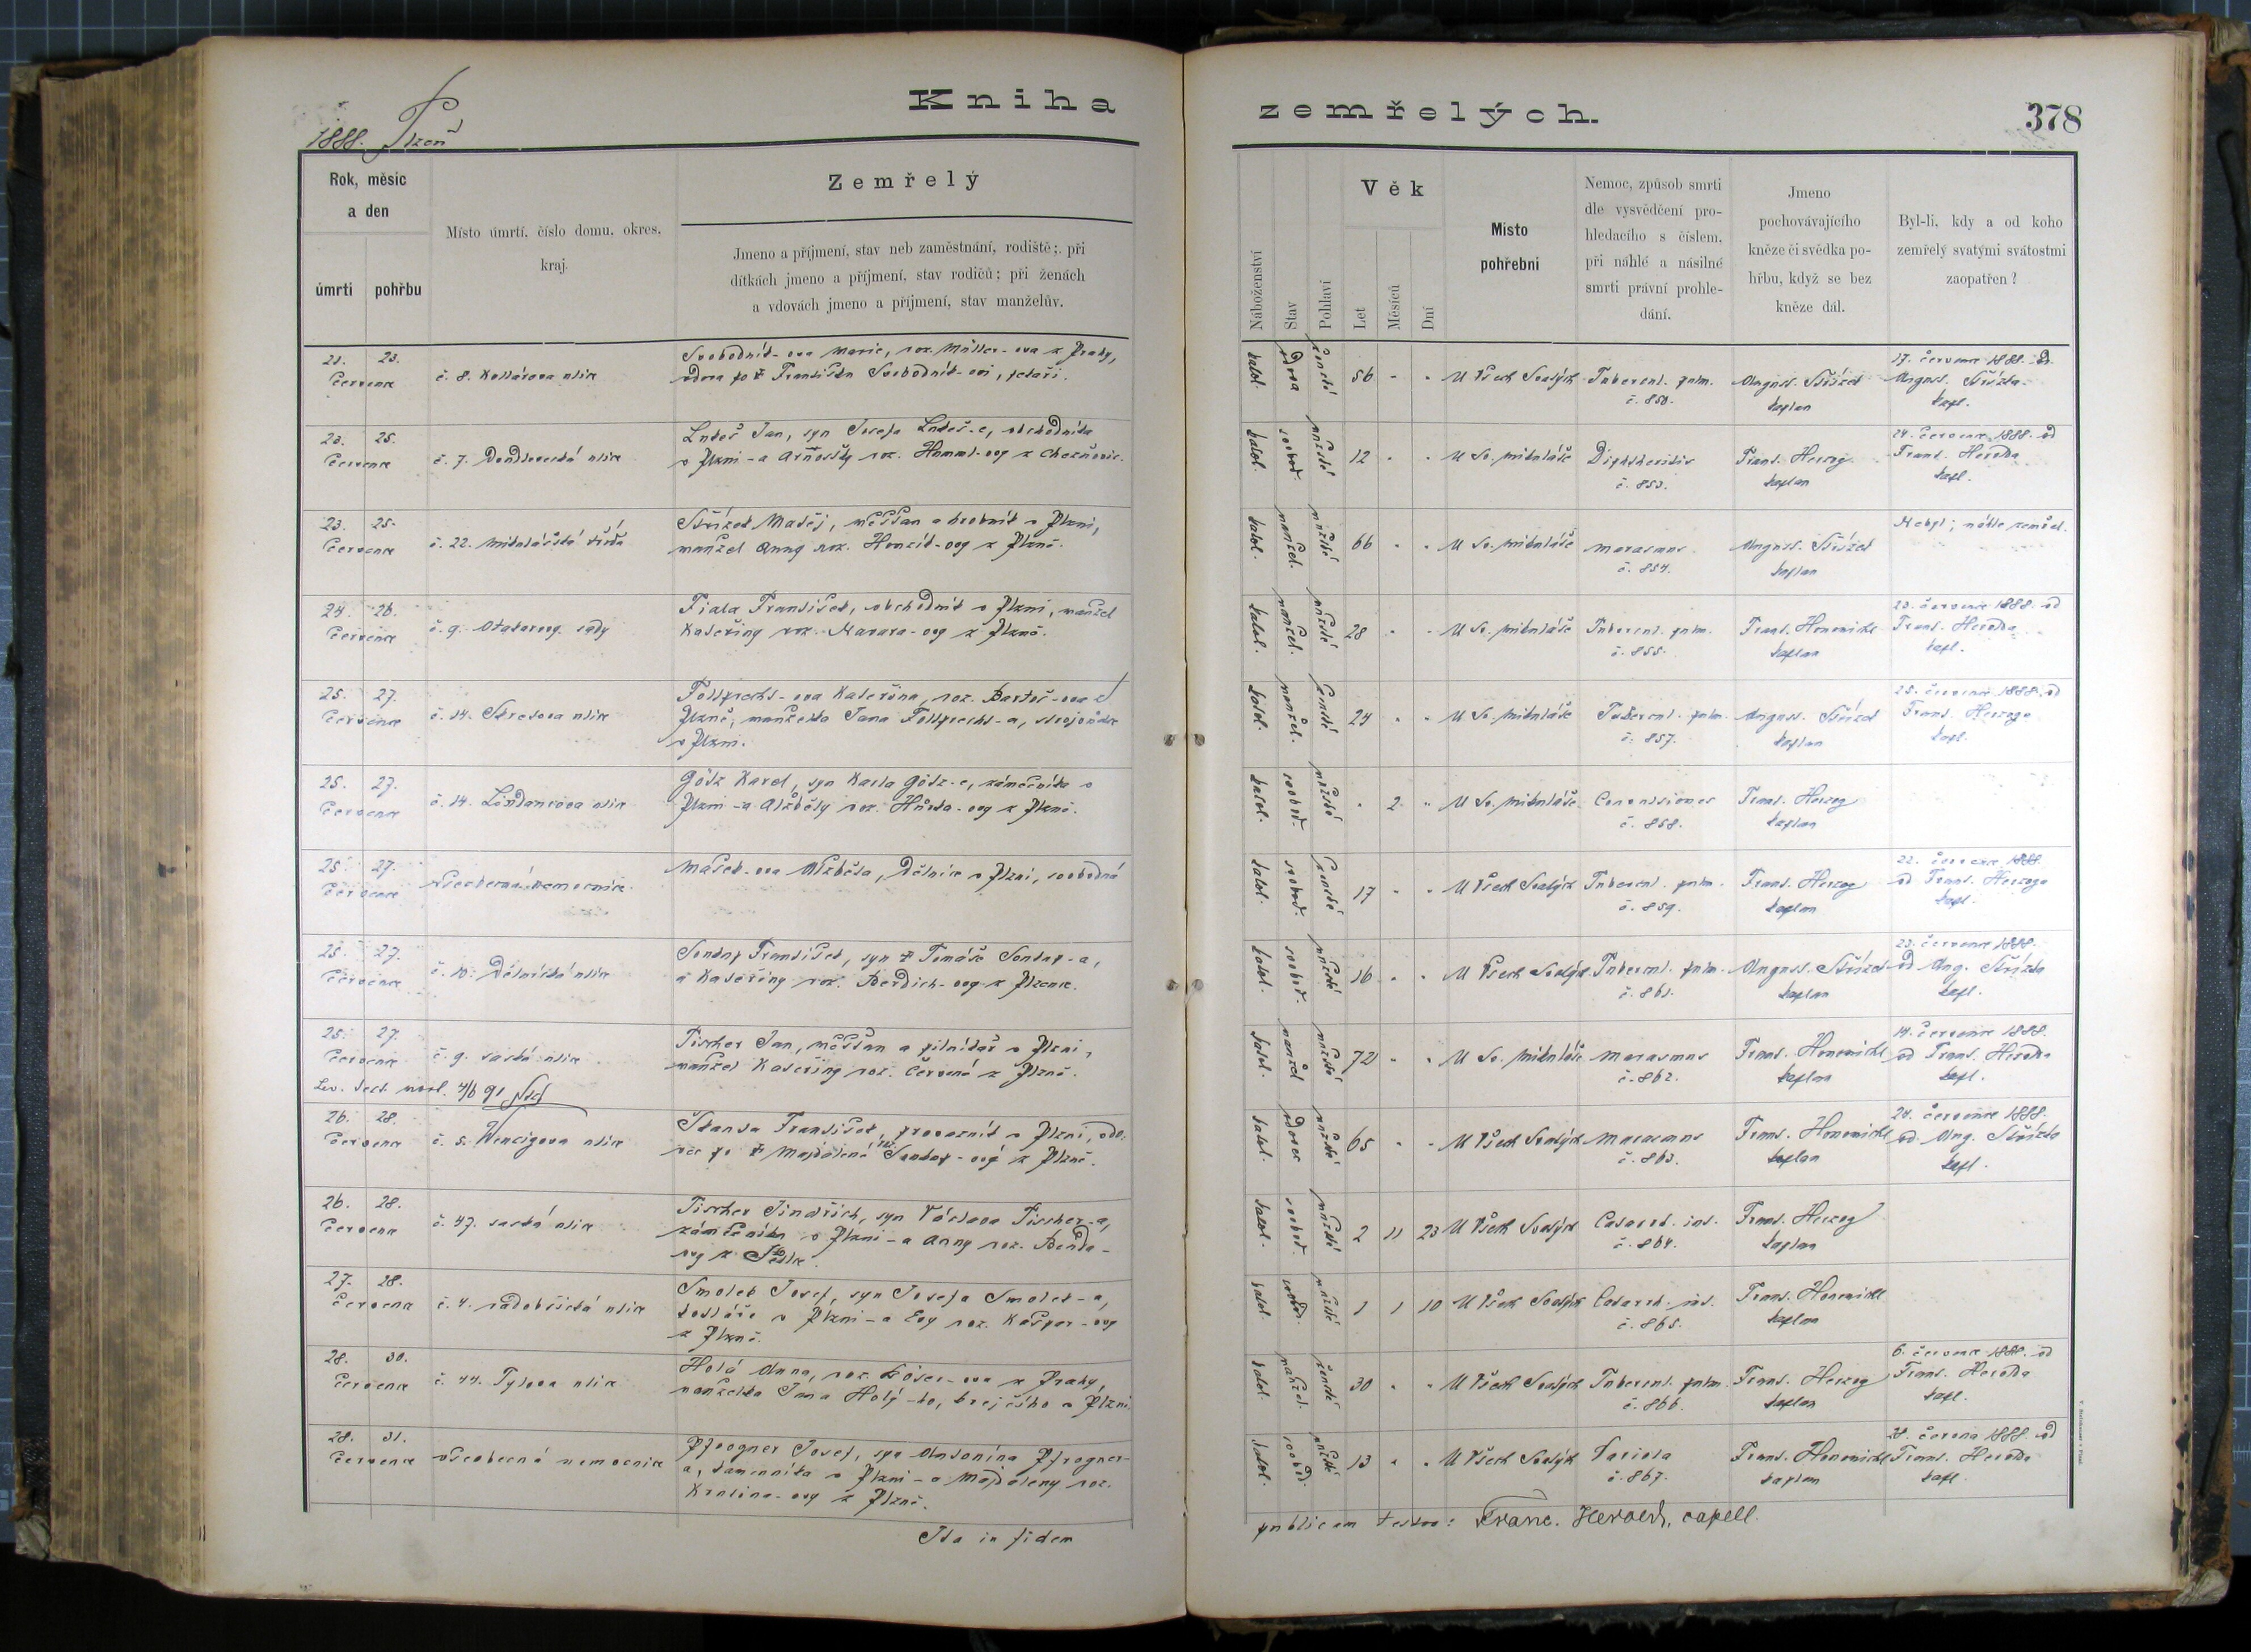 1888. Plzeň
Kniha zemřelých.
378
Rok, měsíc a den
úmrtí
pohřbu
Místo úmrtí, číslo domu, okres, kraj.
Zemřelý
Jmeno a příjmení, stav neb zaměstnání, rodiště; při
dítkách jmeno a příjmení, stav rodičů; při ženách
a vdovách jmeno a příjmení, stav manželův.
Náboženství
Stav
Pohlaví
Věk
Let
Měsíců
Dní
Místo
pohřební
Nemoc, způsob smrti
dle vysvědčení pro-
hledacího s číslem,
při náhlé a násilné
smrti právní prohle-
dání.
Jmeno
pochovávajícího
kněze či svědka po-
hřbu, když se bez
kněze dál.
Byl-li, kdy a od koho
zemřelý svatými svátostmi
zaopatřen?
21. 23.
července
č. 8. Kollárova ulice
Svobodník-ova Marie, roz. Müller-ova z Prahy,
vdova po † Františku Svobodník-ovi,
katol. vdova ženské 56 U Všech Svatých Tubercul. pulm.
č. 850.
August. Střízek
kaplan
17. července 1888. od
August. Střízka
kapl.
23. 25.
července
č. 7. ulice
Jan, syn Josefa obchodníka
v Plzni - a Arnoštky roz.
katol. svobod. mužské 12 U Sv. Mikuláše Diphtheritis
č. 853.
Frant. Herzog
kaplan
24. července 1888. od
Frant. Herolda
kapl.
23. 25.
července
č. 22. Mikulášská třída
Střízek Matěj, měšťan a hrobník v Plzni,
manžel Anny roz. Honzík-ovy z Plzně.
katol. manžel. mužské 66 U Sv. Mikuláše Marasmus
č. 854.
August. Střízek
kaplan
Nebyl; náhle zemřel.
24. 26.
července
č. 9. Otakarovy sady
Fiala František, obchodník v Plzni, manžel
Kateřiny roz. Navara-ovy z Plzně.
katol. manžel. mužské 28 U Sv. Mikuláše Tubercul. pulm.
č. 855.
Frant. Honomichl
kaplan
23. července 1888. od
Frant. Herolda
kapl.
25. 27.
července
č. 14. ulice
Follprecht-ova Kateřina, roz. Bartoš-ova z
Plzně, manželka Jana Follprecht-a, strojvůdce
v Plzni.
katol. manžel. ženské 24 U Sv. Mikuláše Tubercul. pulm.
č. 857.
August. Střízek
kaplan
25. července 1888. od
Frant. Herzoga
kapl.
25. 27.
července
č. 14. Lindaurova ulice
Götz Karel, syn Karla Götz-e, zámečníka v
Plzni - a Alžběty roz. Hůrka-ovy z Plzně.
katol. svobod. mužské 2 U Sv. Mikuláše Convulsiones
č. 858.
Frant. Herzog
kaplan
25. 27.
července
všeobecná nemocnice
Mašek-ova Alžběta, dělnice v Plzni, svobodná
katol. svobod. ženské 17 U Všech Svatých Tubercul. pulm.
č. 859.
Frant. Herzog
kaplan
22. července 1888.
od Frant. Herzoga
kapl.
25. 27.
července
č. 10. Dělnická ulice
František, syn † Tomáše
a Kateřiny roz. Berdich-ovy z Plzence.
katol. svobod. mužské 16 U Všech Svatých Tubercul. pulm.
č. 861.
August. Střízek
kaplan
23. července 1888.
od Aug. Střízka
kapl.
25. 27.
července
č. 9. saská ulice
Fischer Jan, měšťan a pilníkář v Plzni,
manžel Kateřiny roz. Červená z Plzně.
katol. manžel mužské 72 U Sv. Mikuláše Marasmus
č. 862.
Frant. Honomichl
kaplan
14. července 1888.
od Frant. Herolda
kapl.
4/6 91
26. 28.
července
č. 5. Wenzigova ulice
Škanda František, provazník v Plzni, vdo-
vec po † Majdaleně roz. z Plzně.
katol. vdovec mužské 65 U Všech Svatých Marasmus
č. 863.
Frant. Honomichl
kaplan
24. července 1888.
od Aug. Střízka
kapl.
26. 28.
července
č. 47. saská ulice
Fischer Jindřich, syn Václava Fischer-a,
zámečníka v Plzni - a Anny roz. Benda-
ovy z
katol. svobod. mužské 2 11 23 U Všech Svatých Catarrh. int.
č. 864.
Frant. Herzog
kaplan
27. 28.
července
č. 4. radobčická ulice
Smolek Josef, syn Josefa Smolek-a,
kotláře v Plzni - a Evy roz. Kašpar-ovy
z Plzně.
katol. svobod. mužské 1 1 10 U Všech Svatých Catarrh. int.
č. 865.
Frant. Honomichl
kaplan
28. 30.
července
č. 44. Tylova ulice
Holá Anna, roz. z Prahy,
manželka Jana Holý-ho, krejčího v Plzni.
katol. manžel. ženské 30 U Všech Svatých Tubercul. pulm.
č. 866.
Frant. Herzog
kaplan
6. července 1888. od
Frant. Herolda
kapl.
28. 31.
července
všeobecná nemocnice
Pfrogner Josef, syn Antonína Pfrogner-
a, kameníka v Plzni - a Majdaleny roz.
Kralina-ovy z Plzně.
katol. svobod. mužské 13 U Všech Svatých Variola
č. 867.
Frant. Honomichl
kaplan
28. června 1888. od
Frant. Herolda
kapl.
Ita in fidem publicam testor: Franc. Herold, capell.